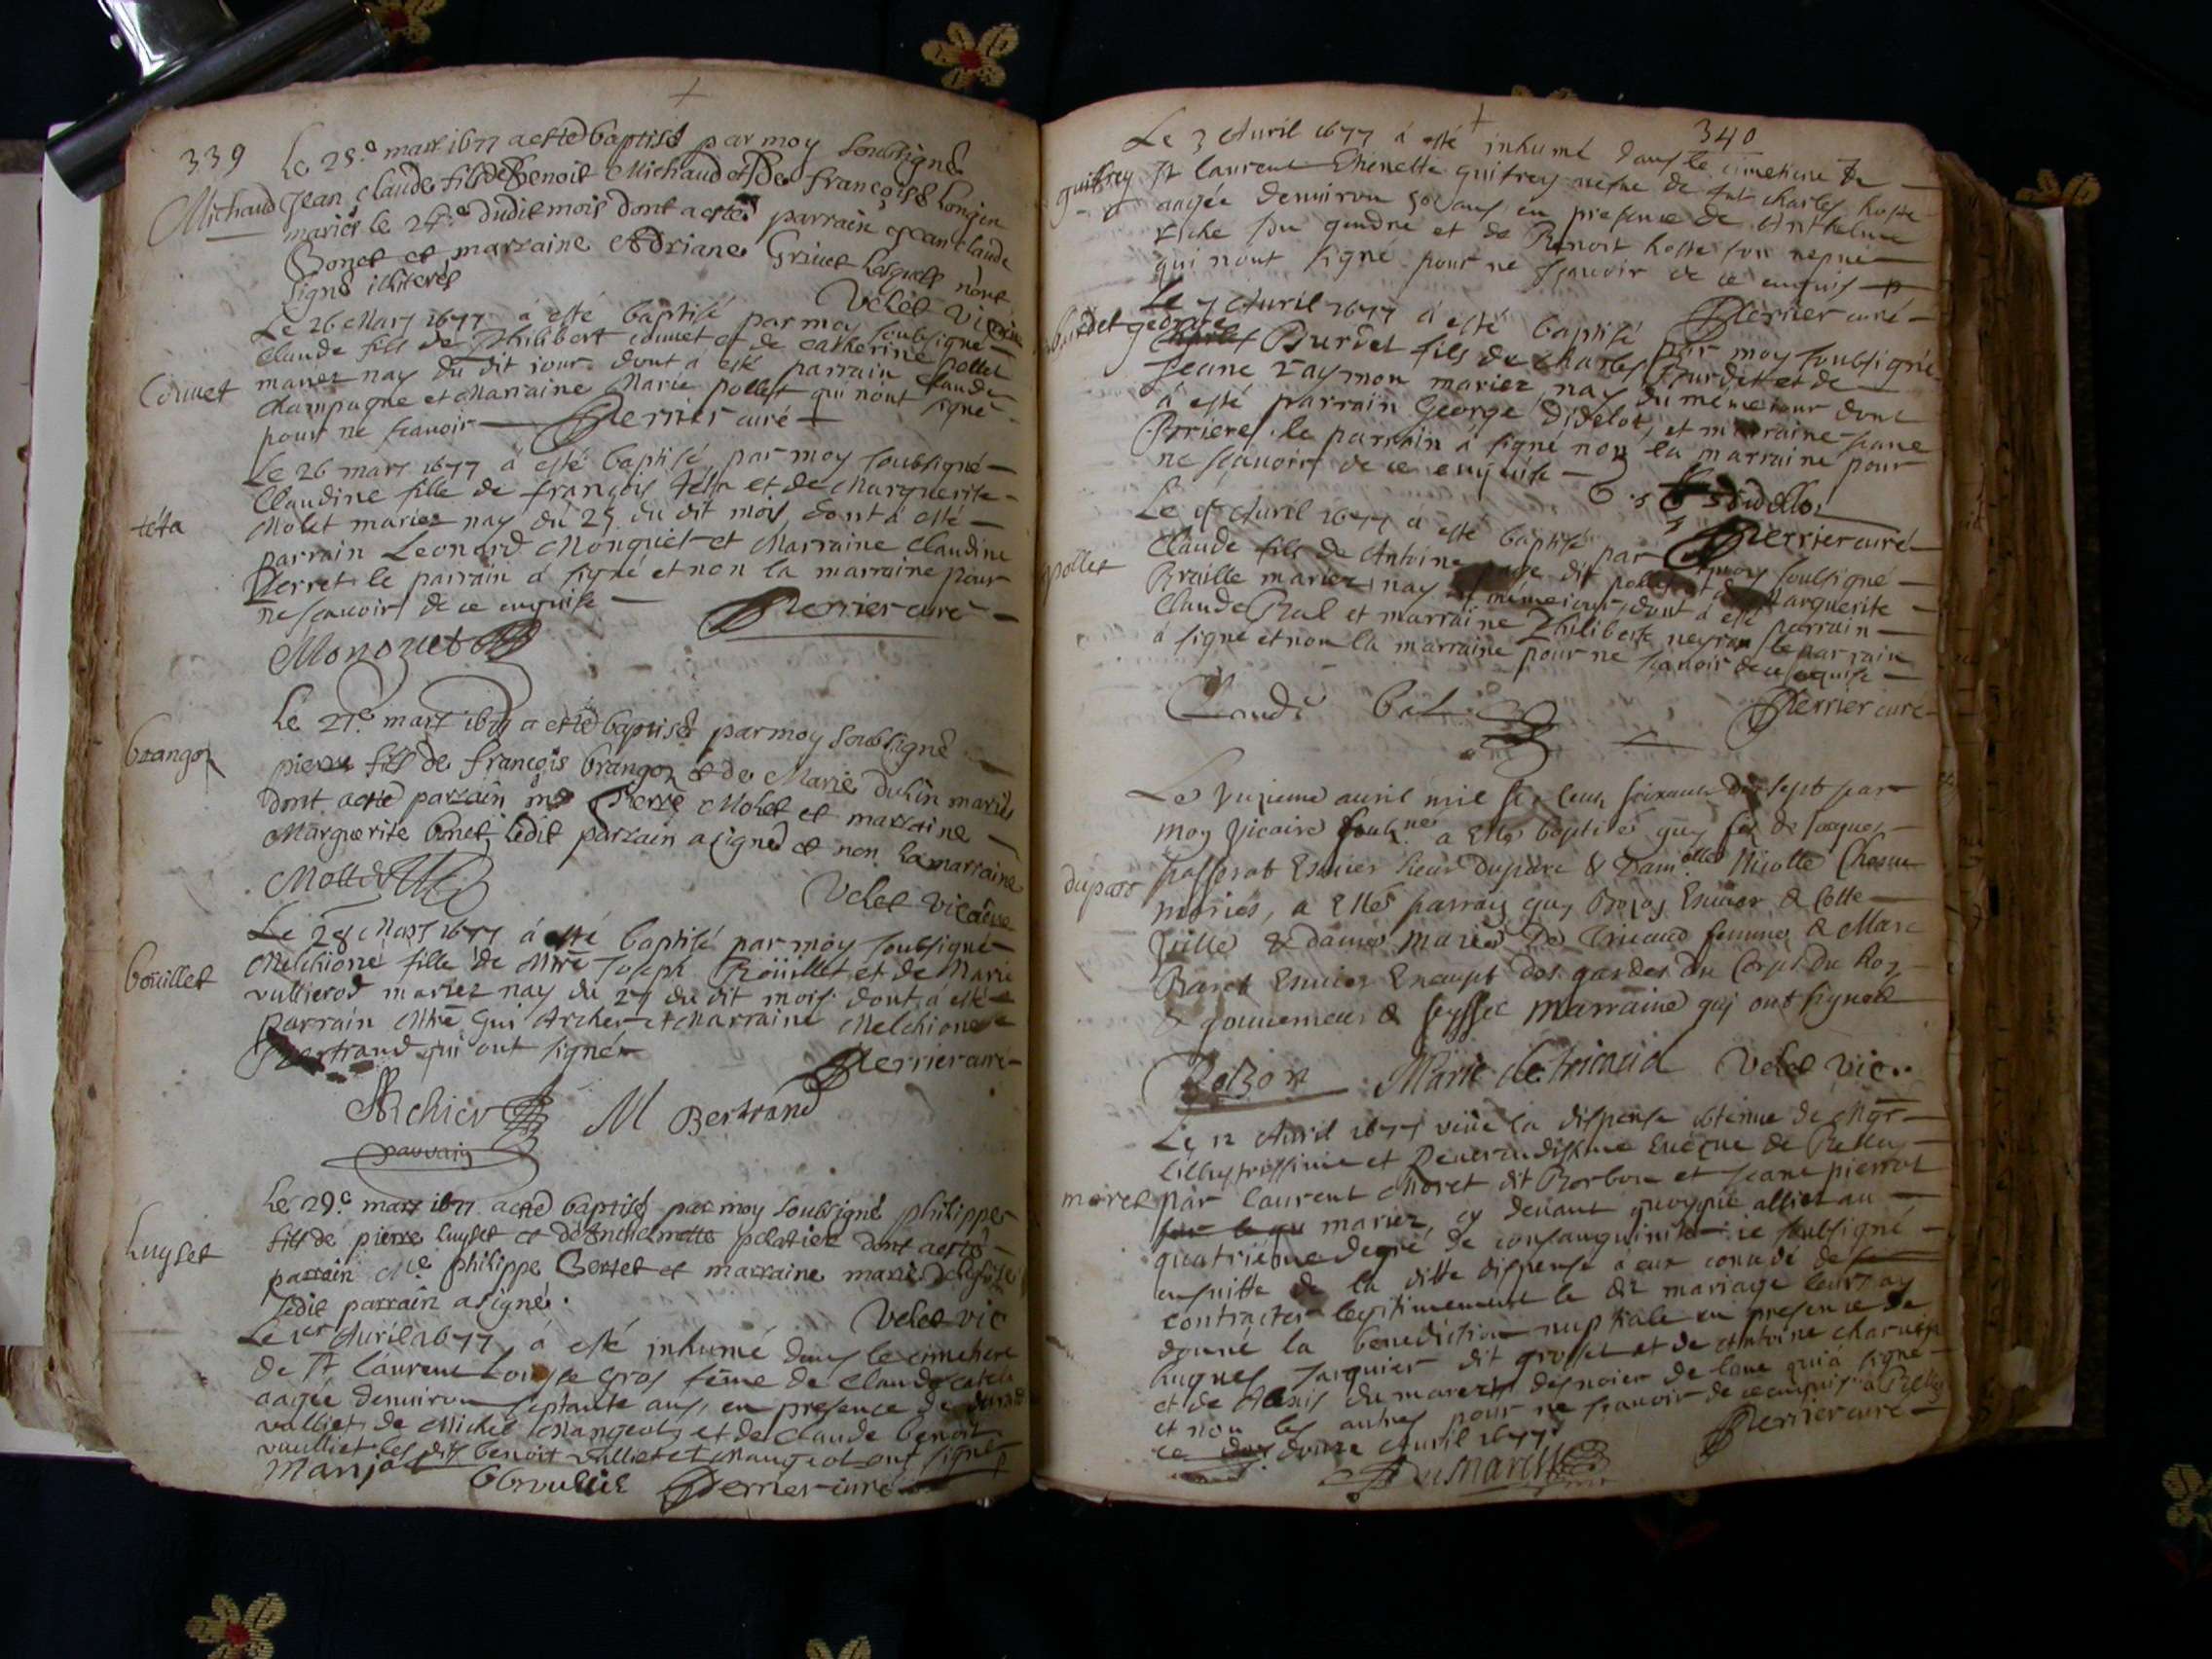 339
Le 25.e mars 1677 a esté baptisé par moy soubsigné
Michaud Jean Claude fils de Benoit Michaud et de françoise Longin
mariés le 24.e dudit mois dont a esté parrain Jean Claude
Bonet et marraine Adriane Grivet lesquels n'ont
signé illiterés
Velet vicaire
Le 26 Mars 1677 à esté baptisé par moy soubsigné
Claude fils de Philibert couvet et de Catherine pollet
Couvet mariez nay du dit jour dont à esté parrain Claude
Champagne et Marraine Marie pollet qui n'ont signé
pour ne scavoir Perrier curé
Le 26 mars 1677 à esté baptisé par moy soubsigné
Claudine fille de françois téta et de Marguerite
téta Molet mariez nay du 25 du dit mois, dont à esté
parrain Leonard Monquet et Marraine Claudine
Perret le parrain à signé et non la marraine pour
ne scavoir de ce enquise Perrier curé
Monoquet
Le 27.e mars 1677 a esté baptisé par moy soubsigné
brangon pierre fils de françois brangon et de Marie duhin mariés
dont a esté parrain me Pierre Molet et marraine
Marguerite bonet, ledit parrain a signé et non la marraine
Mollet
Velet vicaire
Le 28 Mars 1677 à esté baptisé par moy soubsigné
Melchione fille de Mtre Joseph Boüillet et de Marie
boüillet vullierod mariez nay du 27 du dit mois dont à esté
parrain Mtre Gui Archer et Marraine Melchione
Bertrand qui ont signéz Perrier curé
Archier M Bertrand
parrain
Le 29.e mars 1677 a esté baptisé par moy soubsigné philippe
Luyset fils de pierre Luyset et d'Anthelmette pelatier dont a esté
parrain Me philippe Bertet et marraine marie
ledit parrain a signé.
Velet vic
Le 1er Avril 1677 à esté inhumé dans le cimetiere
de st laurent Louyse Gros féme de Claude
aagée denviron septante ans, en presence de
vulliet, de Michel Mangeot, et de Claude benoit
vuulliet les dits benoit vulliet et Mangeot ont signé
Manjot Bbvulliet Perrier curé
340
Le 3 Avril 1677 à esté inhumé dans le cimetiere de
guifrey st laurent Thenette guifrey vefve de fut charles hoste
aagée denviron 50 ans, en presence de Anthelme
riche son gendre et de Benoit hoste son nepveu
qui n'ont signé pour ne scavoir de ce enquis
Perrier curé
Le 7 Avril 1677 à esté baptisé par moy soubsigné
burdet george Burdet fils de Charles Burdet et de
Jeane raymon mariez nay du méme iour dont
à esté parrain George Didelot, et marraine Jeane
Briere, le parrain à signé non la marraine pour
ne scavoir de ce enquise
G Didello
Perrier curé
Le 9 Avril 1677 à esté baptisé par moy soubsigné
pollet Claude fils de Antoine dit pollet et de Marguerite
Braille mariez, nay du méme iour, dont à esté parrain
Claude Bal et marraine Philiberte neyron le parrain
à signé et non la marraine pour ne scavoir de ce enquise
Claude bal
Perrier curé
Le unzieme avril mil six cens soixante dix sept par
moy vicaire soubné a Esté baptisé guy fils de Jacques
duparc passerat Escuier sieur duparc & Damlle Nicolle
mariés, a Esté parrain guy Bozon Escuier de Cotte
ville & dame marie De Tricaud femme de Marc
Baret Escuier Exempt des gardes du Corps du Roy
& gouverneur de seyssel marraine qui ont signé
Bozon Marie de tricaud Velet vic.
Le 12 Avril 1677 veüe la dispense obtenue de Mgr
Lillustrissime et Reverendissime Evéque de Belley
moret par Laurent Moret dit Borbon et Jeane pierrot
mariez, cy devant quoyque alliez au
quatriéme degré de consanguinité ie soubsigné
ensuitte de la ditte dispense à eux concedé de
contracter legitimement le dit mariage leur ay
donné la benediction nuptiale en presence de
hugues Jarquier dit grosset et de Antoine
et de Alexis du marest qui à signé
et non les autres pour ne scavoir de ce enquis à Belley
ce douze Avril 1677
Perrier curé
DuMarest